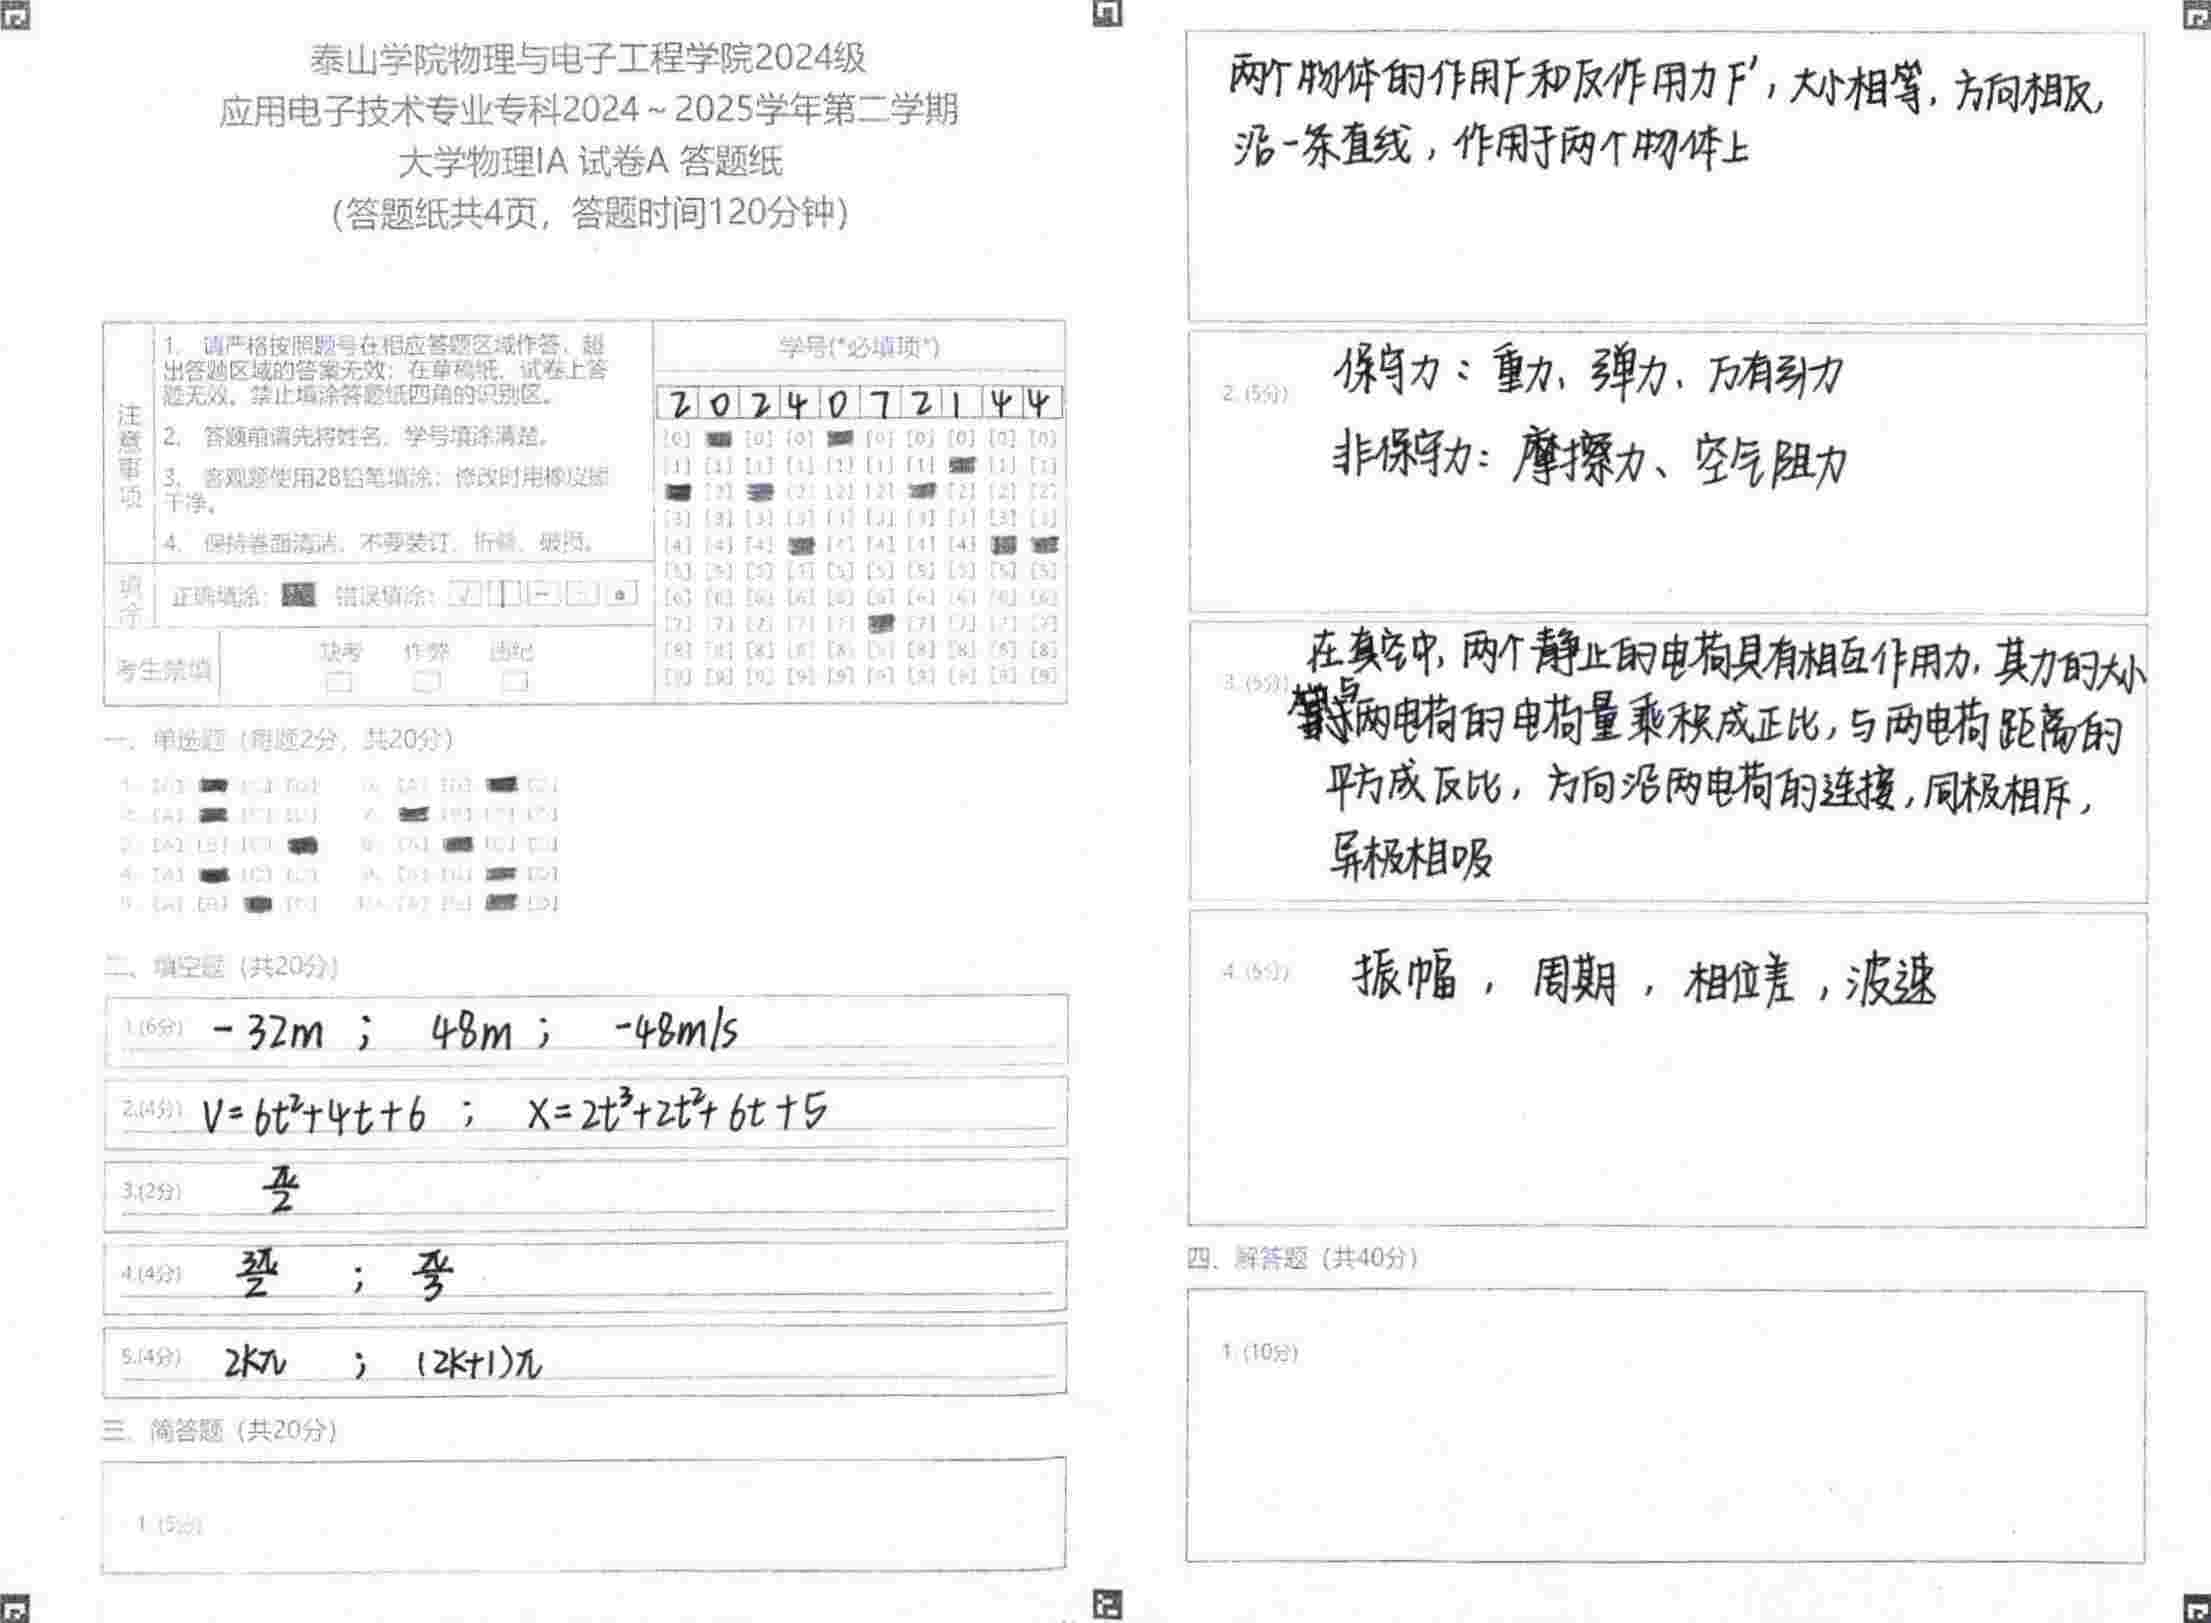 泰山学院物理与电子工程学院2024级
应用电子技术专业专科2024～2025学年第二学期
大学物理IA 试卷A 答题纸
（答题纸共4页，答题时间120分钟）
注意事项
1. 请严格按照题号在相应答题区域作答，超
出答题区域的答案无效；在草稿纸、试卷上答
题无效。禁止填涂答题纸四角的识别区。
2. 答题前请先将姓名、学号填涂清楚。
3. 客观题使用2B铅笔填涂；修改时用橡皮擦
干净。
4. 保持卷面清洁，不要装订、折叠、破损。
填涂
正确填涂： 错误填涂：
考生禁填
缺考 作弊 违纪
学号(*必填项*)
2 0 2 4 0 7 2 1 4 4
一、单选题（每题2分，共20分）
二、填空题（共20分）
1.(6分) -32m ； 48m ； -48m/s
2.(4分) V=6t²+4t+6 ； X=2t³+2t²+6t+5
3.(2分) π/2
4.(4分) 3π/2 ； π/3
5.(4分) 2kπ ； (2k+1)π
三、简答题（共20分）
1.(5分)
两个物体的作用F和反作用力F'，大小相等，方向相反，
沿一条直线，作用于两个物体上
2.(5分) 保守力：重力、弹力、万有引力
非保守力：摩擦力、空气阻力
3.(5分) 在真空中，两个静止的电荷具有相互作用力，其力的大小
两电荷的电荷量乘积成正比，与两电荷距离的
平方成反比，方向沿两电荷的连接，同极相斥，
异极相吸
4.(5分) 振幅，周期，相位差，波速
四、解答题（共40分）
1.(10分)